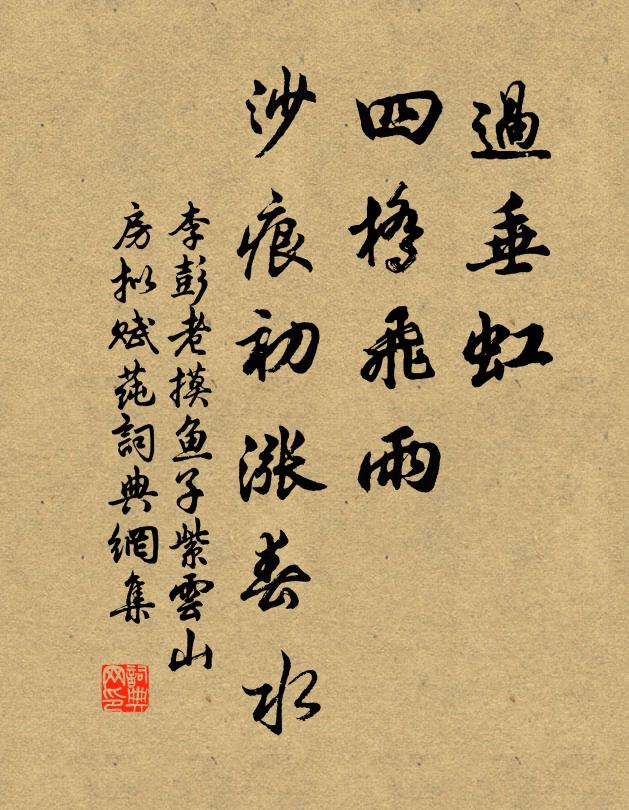 過垂虹
四橋飛雨
沙痕初漲春水
李彭老摸鱼子紫雲山
房拟赋莼詞典網集
詞典
网印